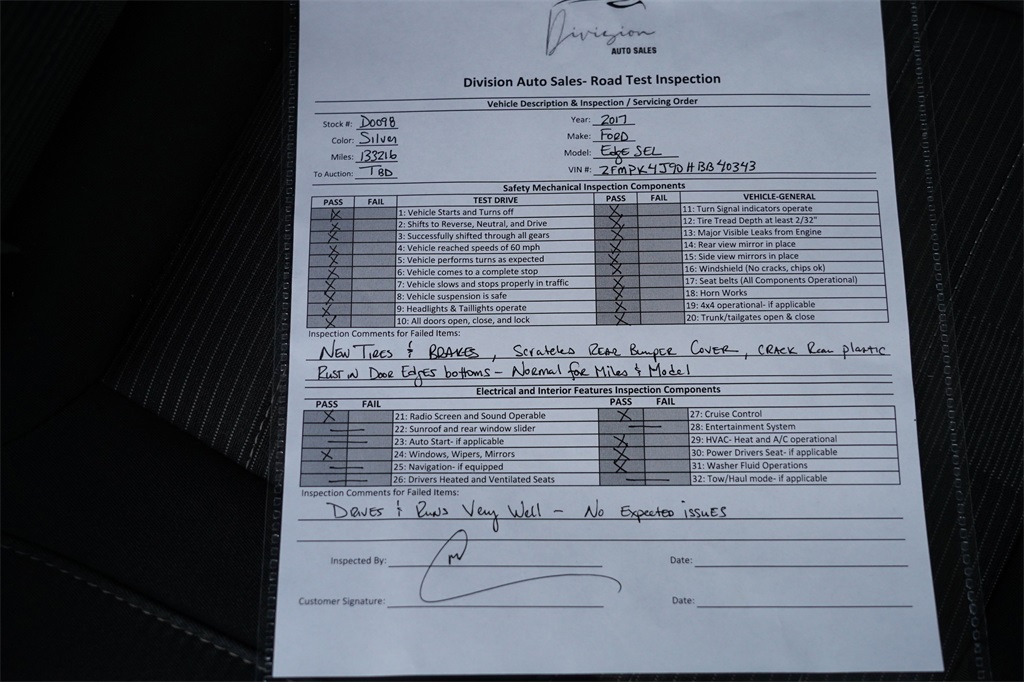 Division
AUTO SALES
Division Auto Sales- Road Test Inspection
Vehicle Description & Inspection / Servicing Order
Stock #: D0098 Year: 2017
Color: Silver Make: FORD
Miles: 133216 Model: Edge SEL
To Auction: TBD VIN #: 2FMPK4J90HBB40343
Safety Mechanical Inspection Components
PASS FAIL TEST DRIVE PASS FAIL VEHICLE-GENERAL
X 1: Vehicle Starts and Turns off X 11: Turn Signal indicators operate
X 2: Shifts to Reverse, Neutral, and Drive X 12: Tire Tread Depth at least 2/32"
X 3: Successfully shifted through all gears X 13: Major Visible Leaks from Engine
X 4: Vehicle reached speeds of 60 mph X 14: Rear view mirror in place
X 5: Vehicle performs turns as expected X 15: Side view mirrors in place
X 6: Vehicle comes to a complete stop X 16: Windshield (No cracks, chips ok)
X 7: Vehicle slows and stops properly in traffic X 17: Seat belts (All Components Operational)
X 8: Vehicle suspension is safe X 18: Horn Works
X 9: Headlights & Taillights operate X 19: 4x4 operational- if applicable
X 10: All doors open, close, and lock X 20: Trunk/tailgates open & close
Inspection Comments for Failed Items:
NEW TIRES & BRAKES, Scratches REAR Bumper COVER, CRACK Rear plastic
RUST IN DOOR EDGES bottoms - NORMAL for Miles & Model
Electrical and Interior Features Inspection Components
PASS FAIL PASS FAIL
X 21: Radio Screen and Sound Operable X 27: Cruise Control
22: Sunroof and rear window slider 28: Entertainment System
23: Auto Start- if applicable X 29: HVAC- Heat and A/C operational
X 24: Windows, Wipers, Mirrors X 30: Power Drivers Seat- if applicable
25: Navigation- if equipped X 31: Washer Fluid Operations
26: Drivers Heated and Ventilated Seats 32: Tow/Haul mode- if applicable
Inspection Comments for Failed Items:
DRIVES & RUNS Very Well - No Expected ISSUES
Inspected By: Date:
Customer Signature: Date: